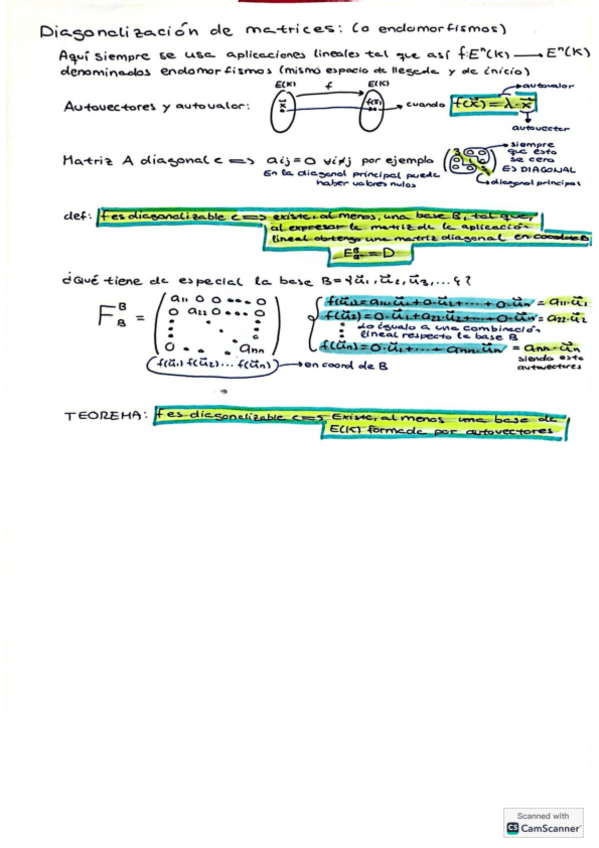 Diagonalización de matrices: (o endomorfismos)
Aquí siempre se usa aplicaciones lineales tal que así f: Eⁿ(K) → Eⁿ(K)
denominados endomorfismos (mismo espacio de llegada y de inicio)
E(K) f E(K)
autovalor
Autovectores y autovalor: x⃗ f(x⃗) cuando f(x⃗) = λ·x⃗
autovector
Matriz A diagonal <=> aij=0 ∀i≠j por ejemplo
En la diagonal principal puede
haber valores nulos
siempre
que esto
sea cero
ES DIAGONAL
diagonal principal
def: f es diagonalizable <=> existe, al menos, una base B, tal que,
al expresar la matriz de la aplicación
lineal obtengo una matriz diagonal en coord de B
= D
¿Qué tiene de especial la base B={u⃗1, u⃗2, u⃗3, ...}?
F B B =
a11 0 0 .... 0
0 a22 0 .... 0
0 . . ann
(f(u⃗1) f(u⃗2) ... f(u⃗n)) → en coord de B
f(u⃗1) = a11·u⃗1 + 0·u⃗2 + ... + 0·u⃗n = a11·u⃗1
f(u⃗2) = 0·u⃗1 + a22·u⃗2 + .... + 0·u⃗n = a22·u⃗2
Lo igualo a una combinación
lineal respecto la base B
f(u⃗n) = 0·u⃗1 + .... + ann·u⃗n = ann·u⃗n
siendo esto
autovectores
TEOREMA: f es diagonalizable <=> Existe, al menos una base de
E(K) formada por autovectores
Scanned with
CS CamScanner